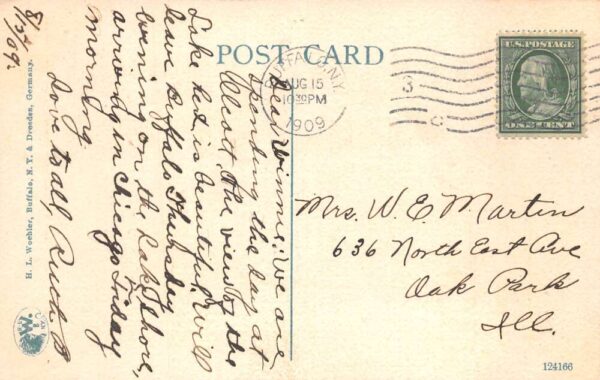 POST CARD
BUFFALO, N.Y.
AUG 15
10 30 PM
1909
3
C
U.S. POSTAGE
ONE CENT
8/15/09.
Dear Winnie: We are
spending the day at
Olcott. The view of the
Lake here is beautiful. Will
leave Buffalo Thursday
evening on the Lake Shore,
arriving in Chicago Friday
morning.
Love to all, Ruth B
Mrs. W. E. Martin
636 North East Ave
Oak Park
Ill.
H. L. Woehler, Buffalo, N. Y. & Dresden, Germany.
124166